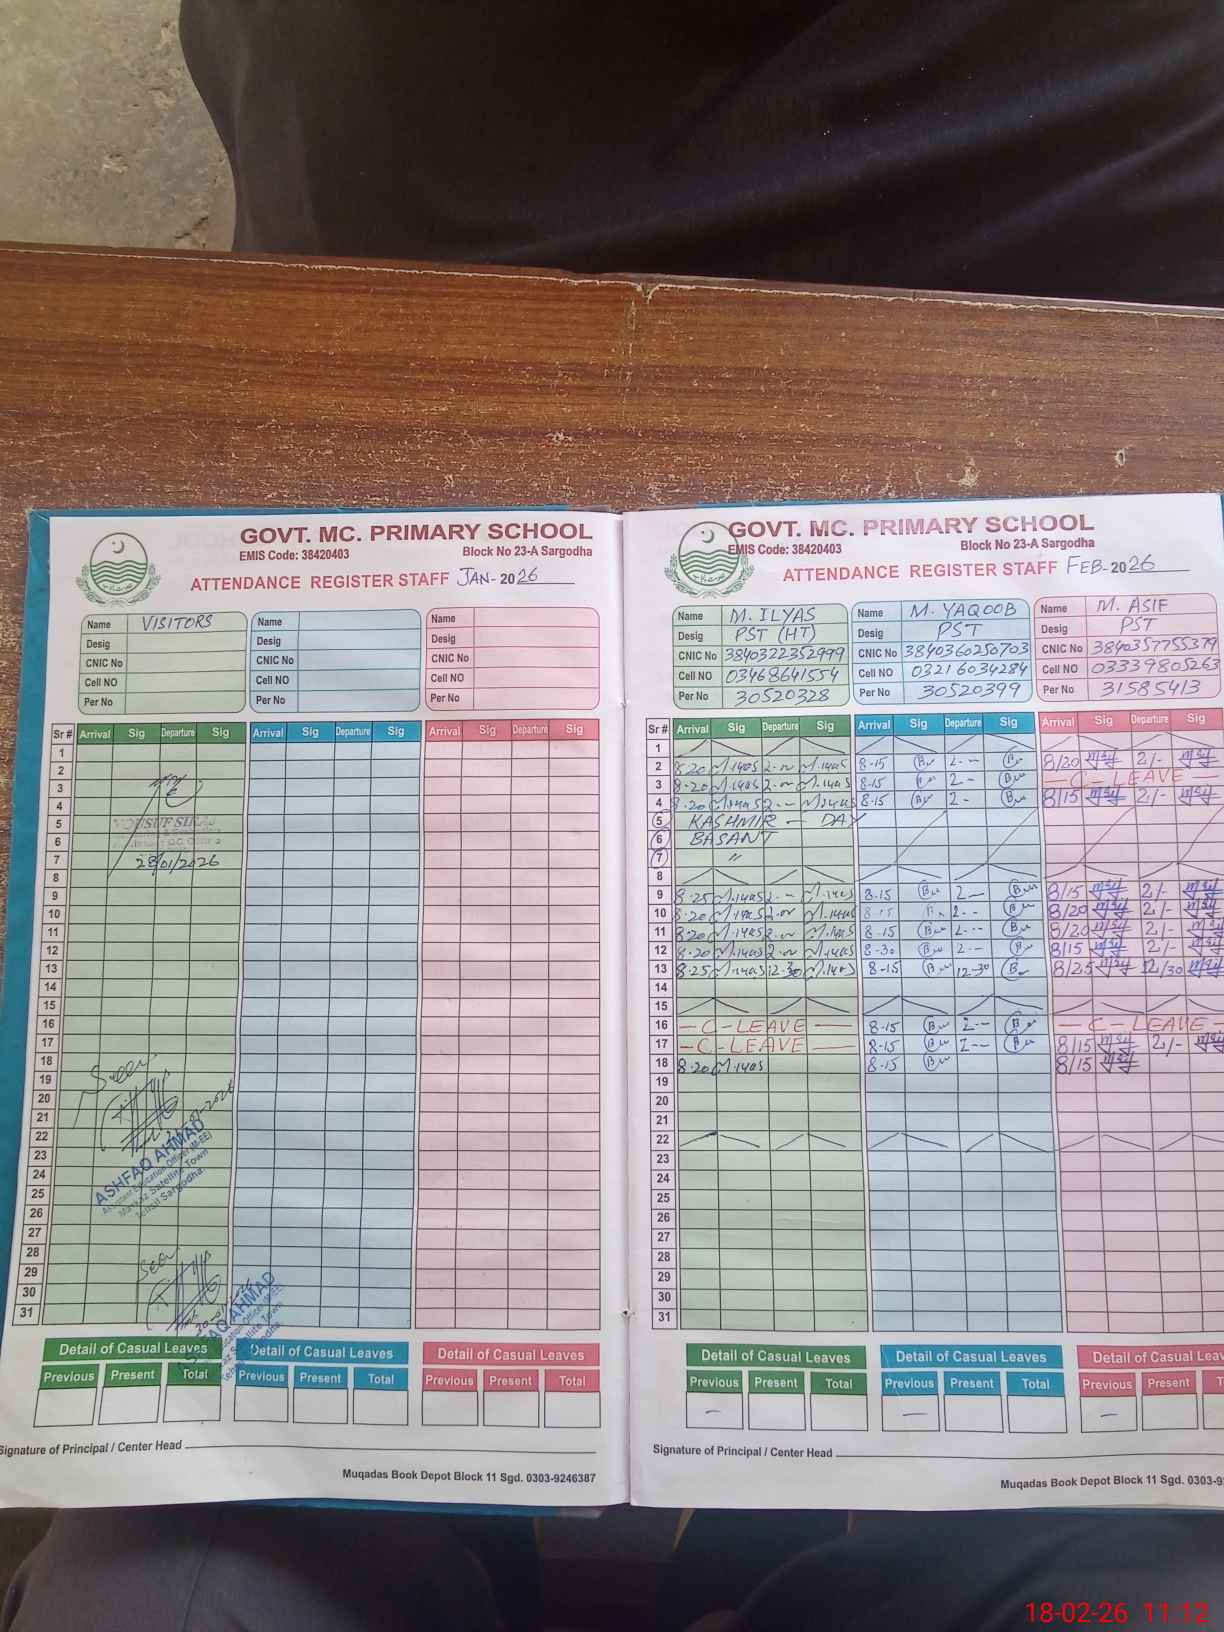 GOVT. MC. PRIMARY SCHOOL
EMIS Code: 38420403 Block No 23-A Sargodha
ATTENDANCE REGISTER STAFF JAN- 2026
Name VISITORS Name Name
Desig Desig Desig
CNIC No CNIC No CNIC No
Cell NO Cell NO Cell NO
Per No Per No Per No
Sr # Arrival Sig Departure Sig Arrival Sig Departure Sig Arrival Sig Departure Sig
1
2
3
4
5 YOUSUF
6
7 28/01/2026
8
9
10
11
12
13
14
15
16
17
18 Seen
19
20
21
22
23 ASHFAQ AHMAD
24 Assistant Education Officer (M-EE)
25 Markaz Satellite Town
26 Tehsil Sargodha.
27
28 Seen
29
30
31 AHMAD
Detail of Casual Leaves Detail of Casual Leaves Detail of Casual Leaves
Previous Present Total Previous Present Total Previous Present Total
Signature of Principal / Center Head
Muqadas Book Depot Block 11 Sgd. 0303-9246387
GOVT. MC. PRIMARY SCHOOL
EMIS Code: 38420403 Block No 23-A Sargodha
ATTENDANCE REGISTER STAFF FEB- 2026
Name M. ILYAS Name M. YAQOOB Name M. ASIF
Desig PST (HT) Desig PST Desig PST
CNIC No 3840322352999 CNIC No 3840360250703 CNIC No 3840357755379
Cell NO 03468641554 Cell NO 03216034284 Cell NO 03339805263
Per No 30520328 Per No 30520399 Per No 31585413
Sr # Arrival Sig Departure Sig Arrival Sig Departure Sig Arrival Sig Departure Sig
1
2 8.20 8-15 2-- 8/20 2/-
3 8.20 8-15 2-- - C - LEAVE -
4 8.20 2-- 8-15 2- 8/15 2/-
5 KASHMIR - DAY
6 BASANT
7 "
8
9 8.25 2-- 8.15 2- 8/15 2/-
10 8.20 8-15 2-- 8/20 2/-
11 8.20 8-15 2-- 8/20 2/-
12 8.20 8-30 2-- 8/15 2/-
13 8.25 12-30 8-15 12-30 8/25 12/30
14
15
16 - C - LEAVE - 8-15 2-- - C - LEAVE -
17 - C - LEAVE - 8-15 2-- 8/15 2/-
18 8.20 8-15 8/15
19
20
21
22
23
24
25
26
27
28
29
30
31
Detail of Casual Leaves Detail of Casual Leaves Detail of Casual
Previous Present Total Previous Present Total Previous Present
- - -
Signature of Principal / Center Head
Muqadas Book Depot Block 11 Sgd.
18-02-26 11:12